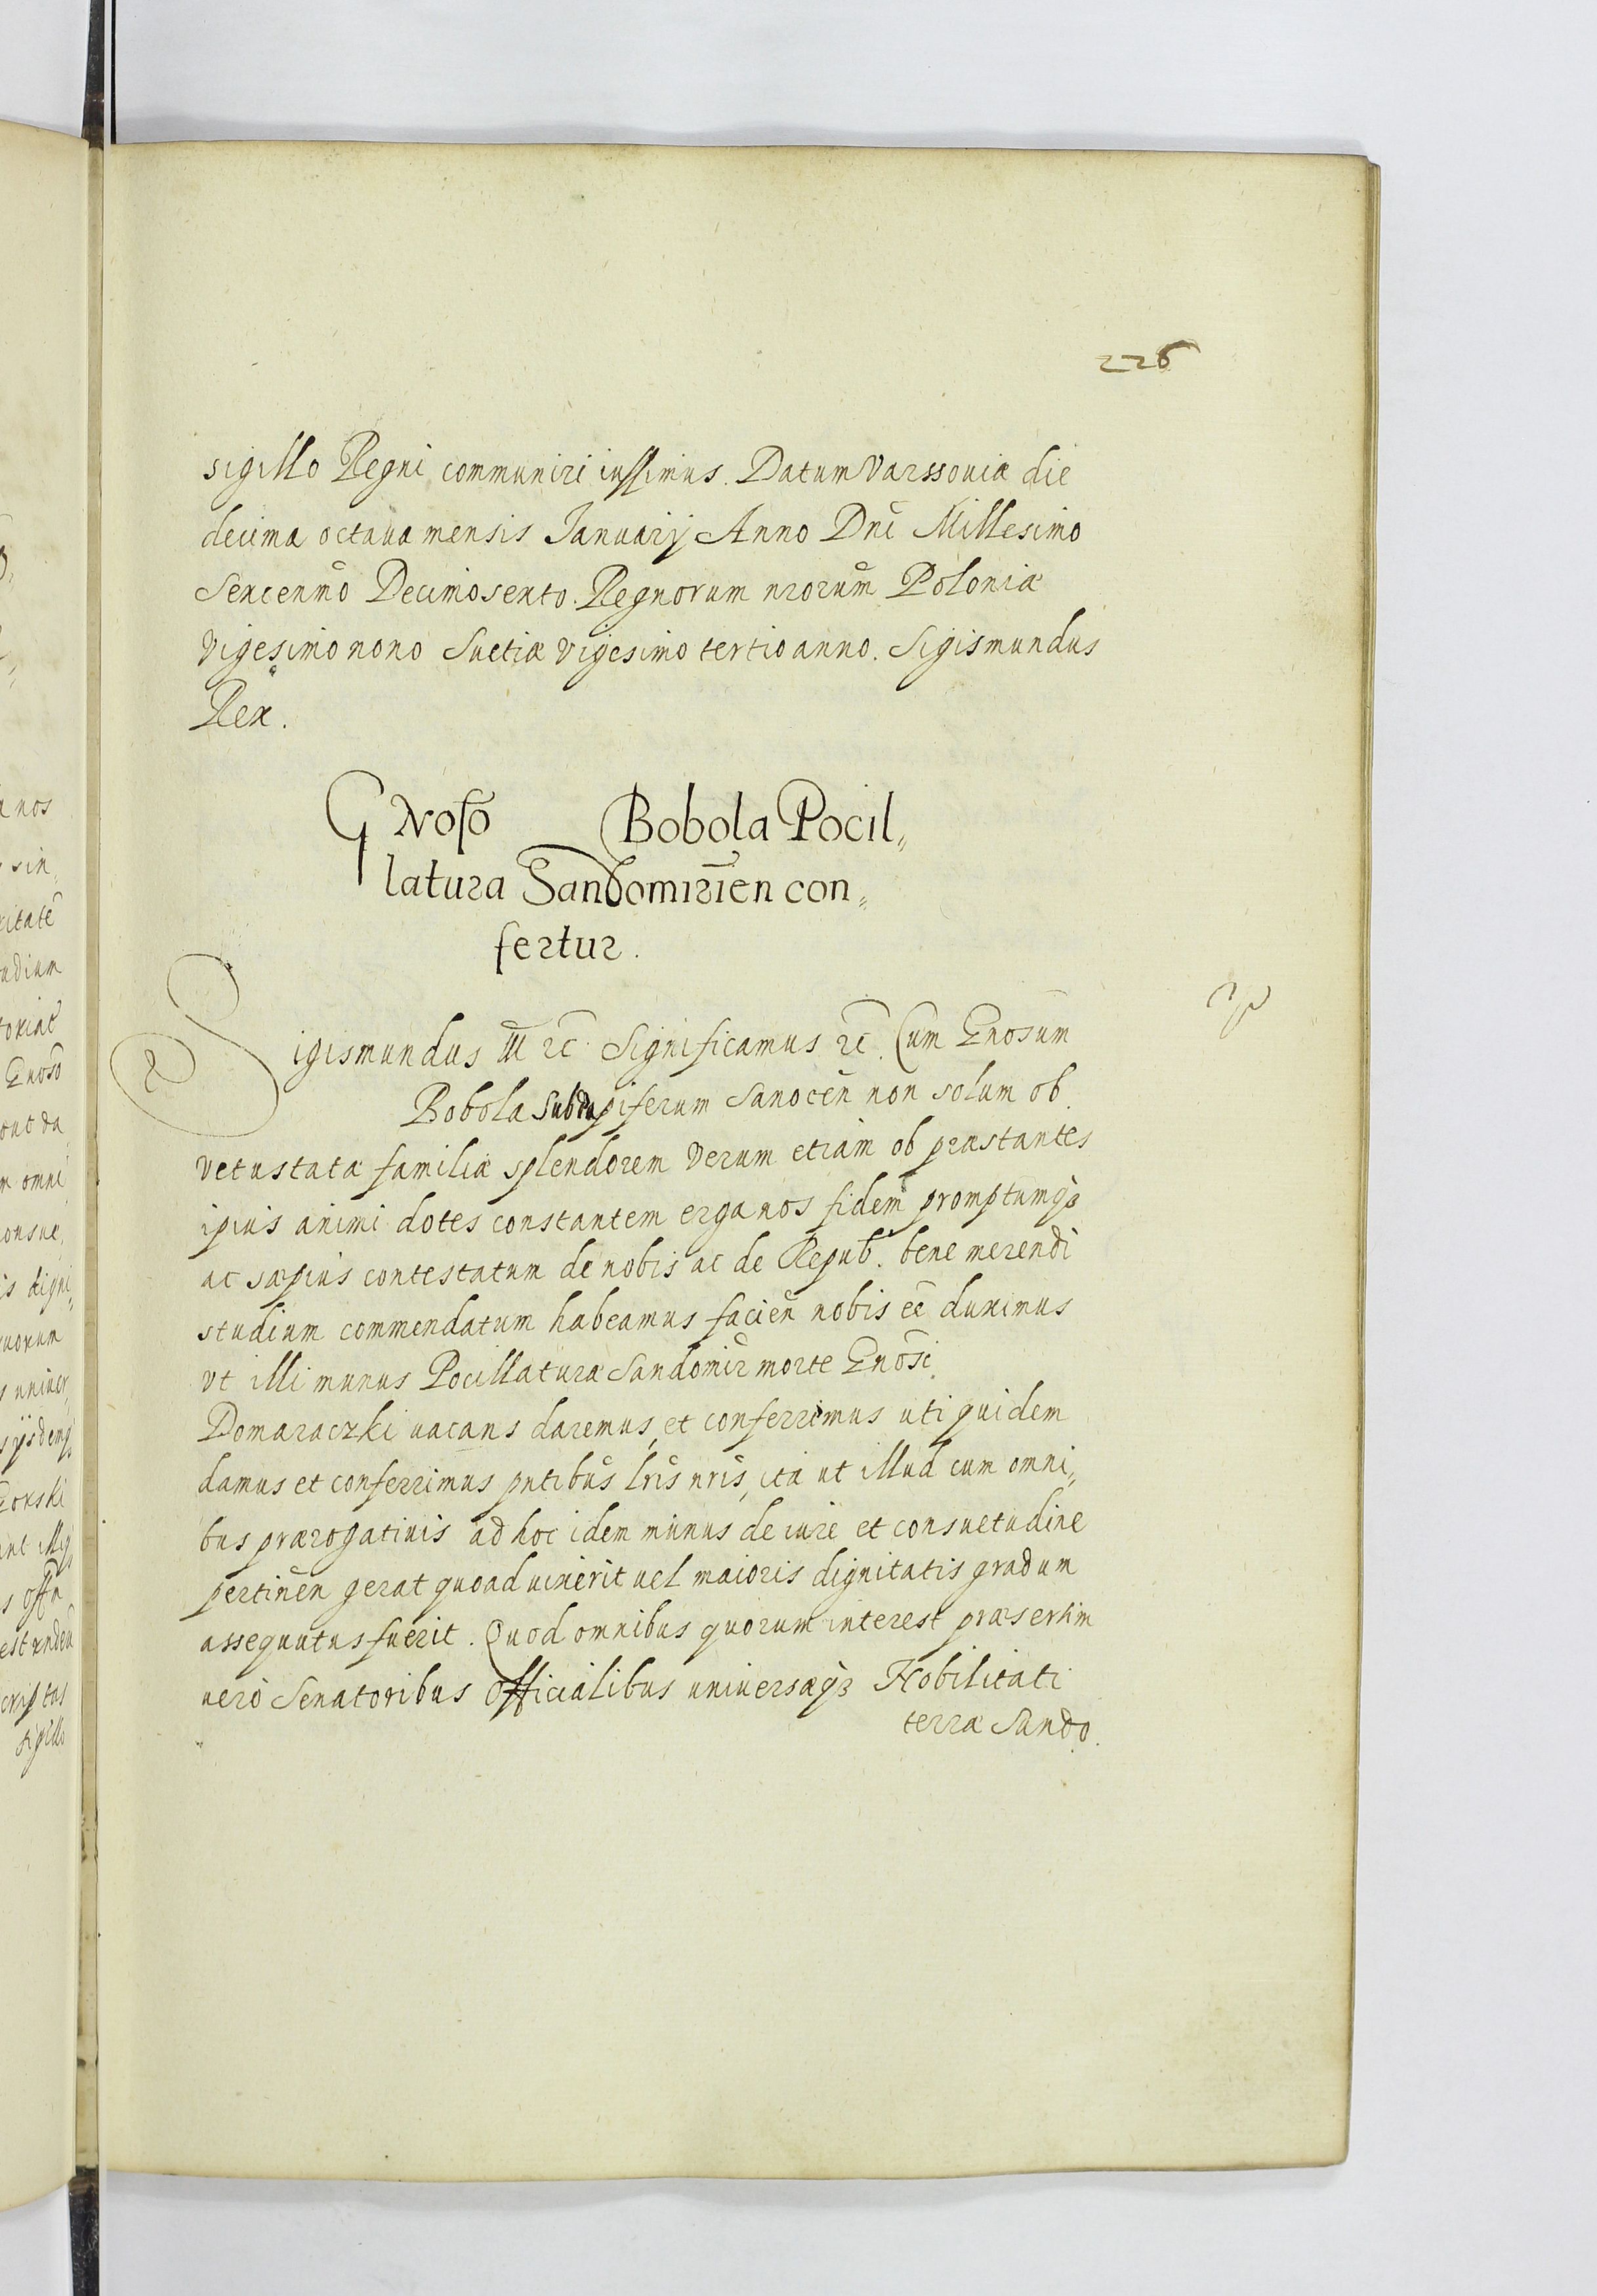 226
sigillo Regni communiri iussimus. Datum Varssouiæ die
decima octaua mensis Ianuarij Anno Dnī Millesimo
Sexcennō Decimosexto. Regnorum nrorum̄ Poloniæ
Vigesimo nono Suetiæ vigesimo tertio anno. Sigismundus
Rex.
Gnoso Bobola Pocil„
latura Sandomirien̄ con„
fertur.
Sigismundus III rc̄ Significamus rc̄. Cum Gnosum
Bobola Subdapiferum Sanocen̄ non solum ob
vetustatæ familiæ splendorem verum etiam ob præstantes
ipius animi dotes constantem erga nos fidem promptumqꝫ
ac sæpius contestatum de nobis ac de Repub. bene merendi
studium commendatum habeamus facien̄ nobis eē duximus
vt illi munus Pocillaturæ Sandomir̄ morte Gnōsi
Domaraczki uacans daremus, et conferrimus uti quidem
damus et conferrimus pn̄tibus lrīs nrīs, ita ut illud cum omni„
bus prærogatiuis ad hoc idem munus de iure et consuetudine
pertinen̄ gerat quoad uixerit uel maioris dignitatis gradum
assequutus fuerit. Quod omnibus quorum interest præsertim
uero Senatoribus Officialibus uniuersæqꝫ Nobilitati
terræ Sando.
a nos
sin„
ritatē
udium
Gnosō
out da
omni
onsue„
is digni„
uorum
uniuer
sijsdemqꝫ
s offn
criptus
sigillo